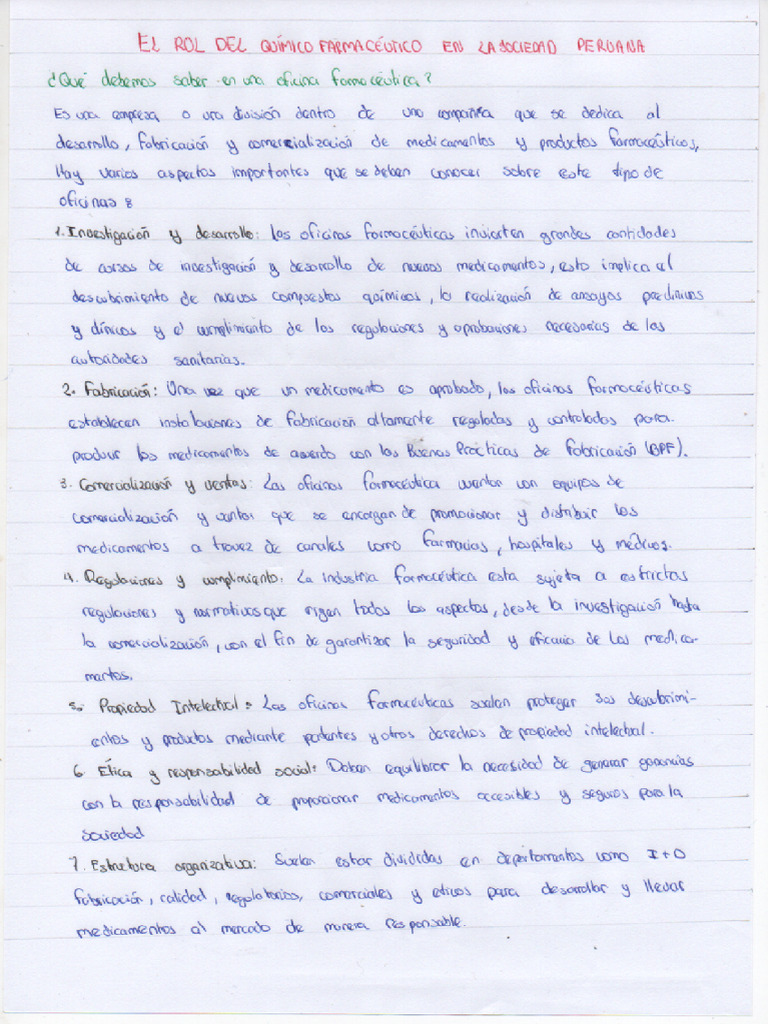 EL ROL DEL QUÍMICO FARMACÉUTICO EN LA SOCIEDAD PERUANA
¿Qué debemos saber en una oficina farmacéutica?
Es una empresa o una división dentro de una compañía que se dedica al
desarrollo, fabricación y comercialización de medicamentos y productos farmacéuticos,
Hay varios aspectos importantes que se deben conocer sobre este tipo de
oficinas:
1. Investigación y desarrollo: Las oficinas farmacéuticas invierten grandes cantidades
de cursos de investigación y desarrollo de nuevos medicamentos, esto implica el
descubrimiento de nuevos compuestos químicos, la realización de ensayos preclínicos
y clínicos y el cumplimiento de las regulaciones y aprobaciones necesarias de las
autoridades sanitarias.
2. Fabricación: Una vez que un medicamento es aprobado, las oficinas farmacéuticas
establecen instalaciones de fabricación altamente reguladas y controladas para
producir los medicamentos de acuerdo con las Buenas Prácticas de Fabricación (BPF).
3. Comercialización y ventas: Las oficinas farmacéutica cuentan con equipos de
comercialización y ventas que se encargan de promocionar y distribuir los
medicamentos a travez de canales como farmacias, hospitales y médicos.
4. Regulaciones y cumplimiento: La industria farmacéutica esta sujeta a estrictas
regulaciones y normativas que rigen todos los aspectos, desde la investigación hasta
la comercialización, con el fin de garantizar la seguridad y eficacia de los medica-
mentos.
5. Propiedad Intelectual: Las oficinas farmacéuticas suelen proteger sus descubrimi-
entos y productos mediante patentes y otros derechos de propiedad intelectual.
6. Ética y responsabilidad social: Deben equilibrar la necesidad de generar ganancias
con la responsabilidad de proporcionar medicamentos accesibles y seguros para la
sociedad
7. Estructura organizativa: Suelen estar divididas en departamentos como I+D
fabricación, calidad, regulatorios, comerciales y eticos para desarrollar y llevar
medicamentos al mercado de manera responsable.